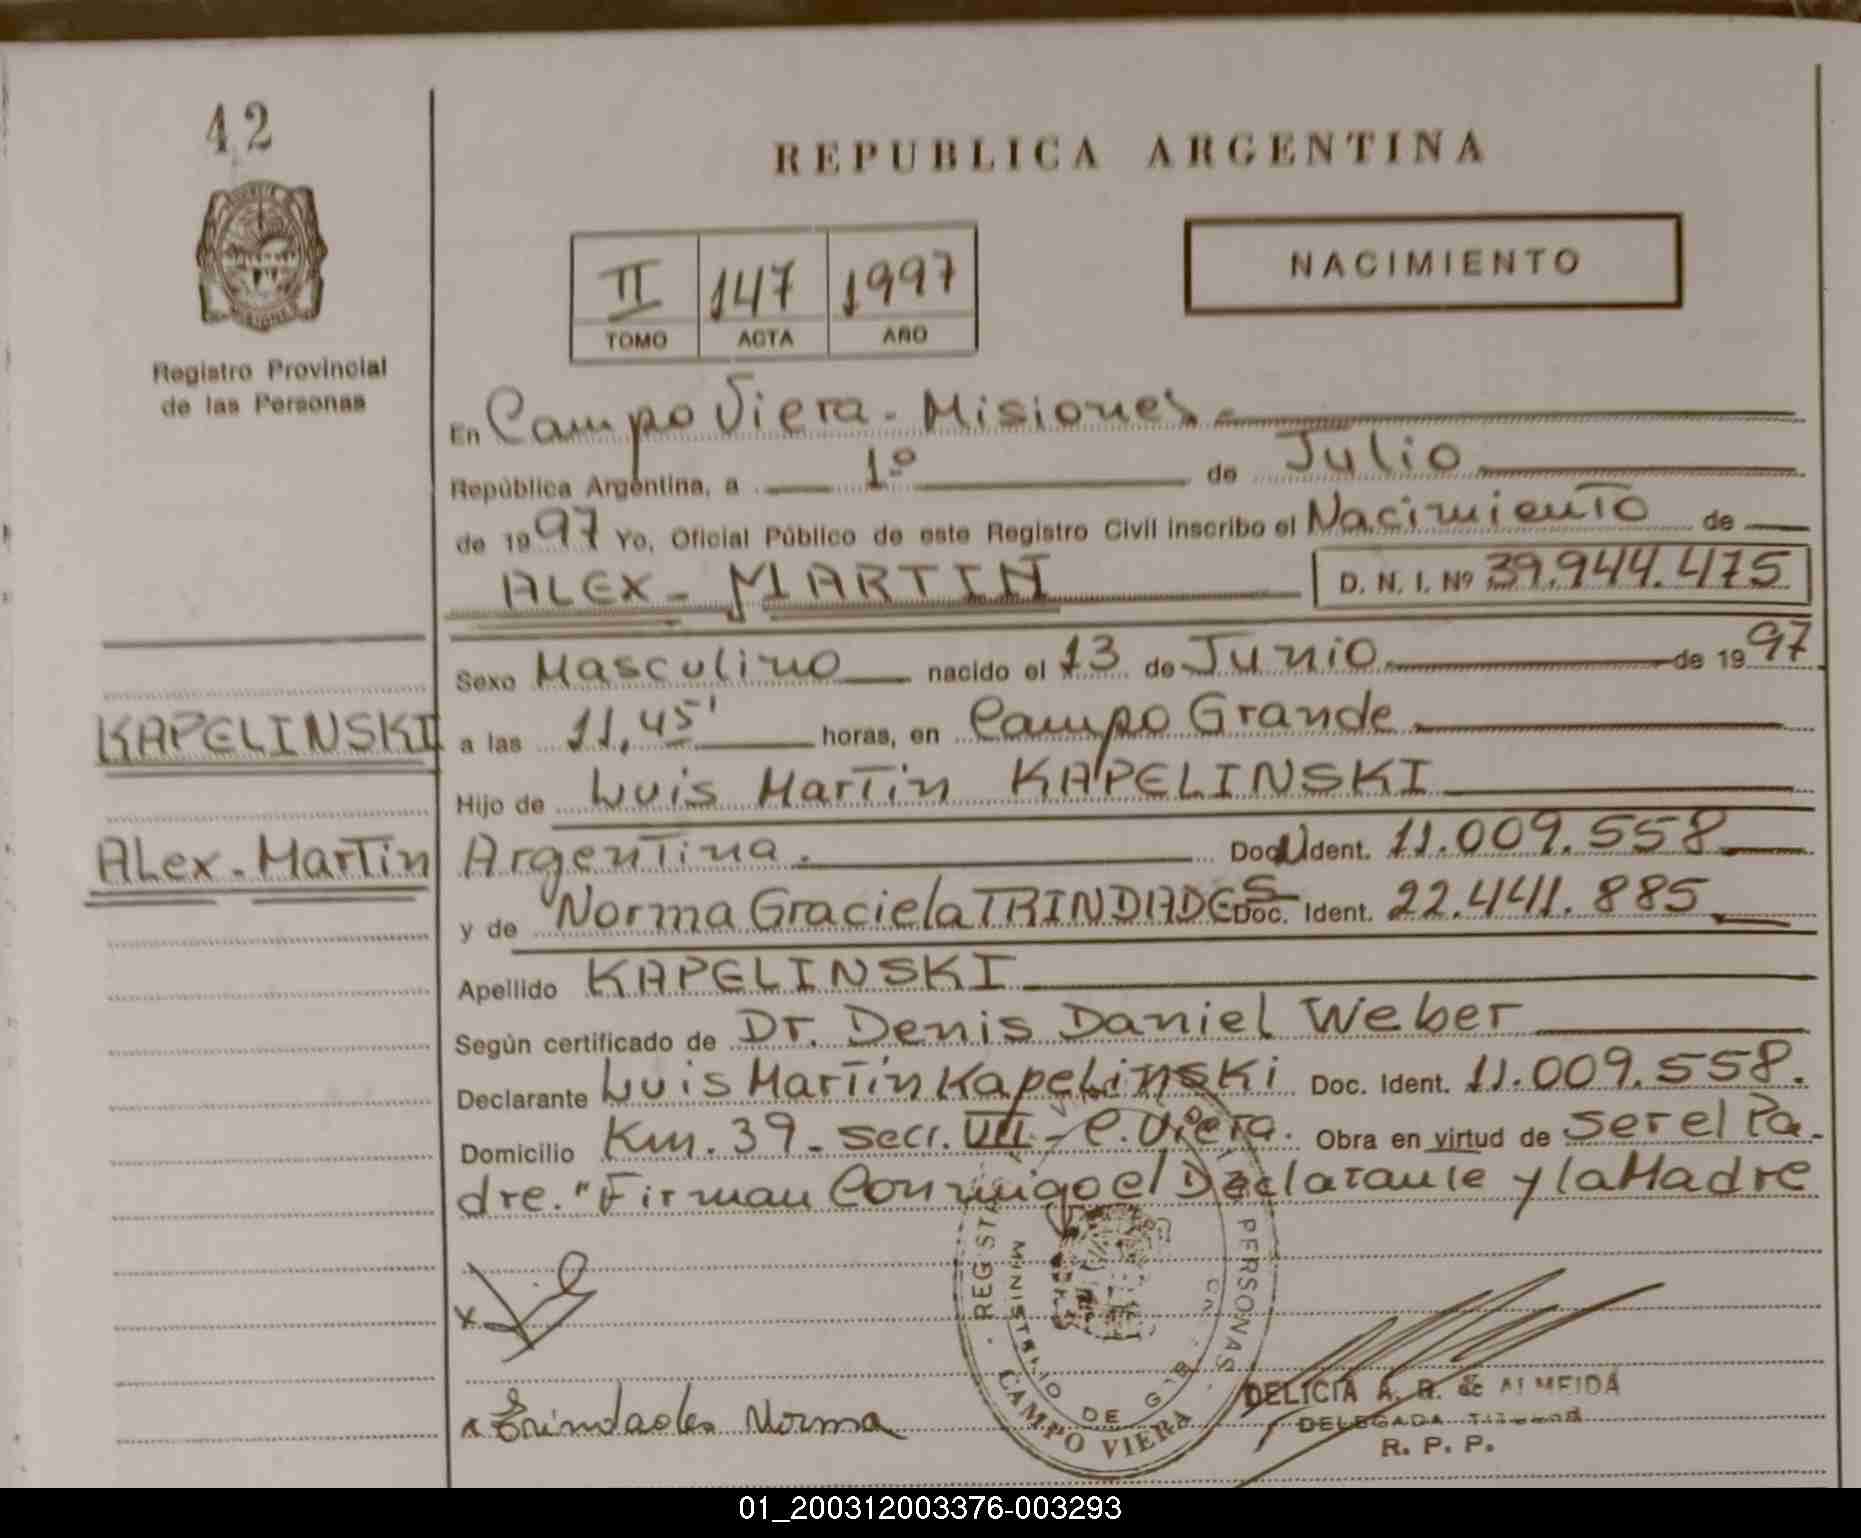 42
REPUBLICA ARGENTINA
NACIMIENTO
II 147 1997
TOMO ACTA AÑO
Registro Provincial
de las Personas
En Campo Viera - Misiones
República Argentina, a 1º de Julio
de 1997 Yo, Oficial Público de este Registro Civil inscribo el Nacimiento de
ALEX - MARTIN D. N. I. Nº 39.944.475
Sexo Masculino nacido el 13 de Junio de 1997
KAPELINSKI
a las 11,45' horas, en Campo Grande
Hijo de Luis Martin KAPELINSKI
ALex - Martin
Argentina. Doc. Ident. 11.009.558
y de Norma Graciela TRINDADES Doc. Ident. 22.441.885
Apellido KAPELINSKI
Según certificado de Dr. Denis Daniel Weber
Declarante Luis Martin Kapelinski Doc. Ident. 11.009.558.
Domicilio Km. 39 - secc. VIII - C. Viera. Obra en virtud de ser el Pa-
dre. "Firman Conmigo el Declarante y la Madre
REGISTR PERSONAS
MINISTERIO DE
CAMPO VIERA
Trindades Norma
DELICIA A. R. de ALMEIDA
DELEGADA TITULAR
R. P. P.
01_200312003376-003293